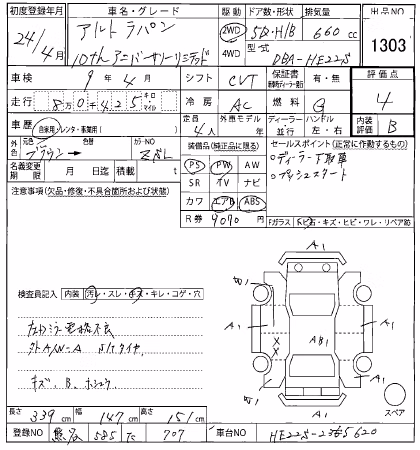 初度登録年月 車名・グレード 駆動 ドア数・形状 排気量 出品NO
24年 4月 アルトラパン 2WD 4WD 5D・H/B 660cc 1303
10th アニバーサリーリミテッド 型式 DBA-HE22S
車検 9年4月 シフト CVT 保証書 有・無 評価点
走行 8万0千425 キロ マイル 冷房 AC 燃料 G 4
車歴 自家用 レンタ・事業用( ) 定員 4人 外車モデル ディーラー 並行 ハンドル 左・右 内装評価 B
外色 元色 ブラウン → 色替 カラーNO ZJL
名義変更期限 月 日迄 積載 t
装備品(純正品に限る) セールスポイント(正常に作動するもの)
PS PW AW ○ディーラー下取車
SR TV ナビ ○プッシュスタート
カワ エアB ABS
R券 9090円 Fガラス 石・キズ・ヒビ・ワレ・リペア跡
注意事項(欠品・修復・不具合箇所および状態)
検査員記入 内装 汚レ・スレ・キズ・キレ・コゲ・穴
キズ、B、
A1
B1 A1
A1 AB1
X
X
A1
B1 A1
A1
スペア
長さ 339cm 幅 147cm 高さ 151cm
登録NO 585 707 車台NO HE22S-2365620